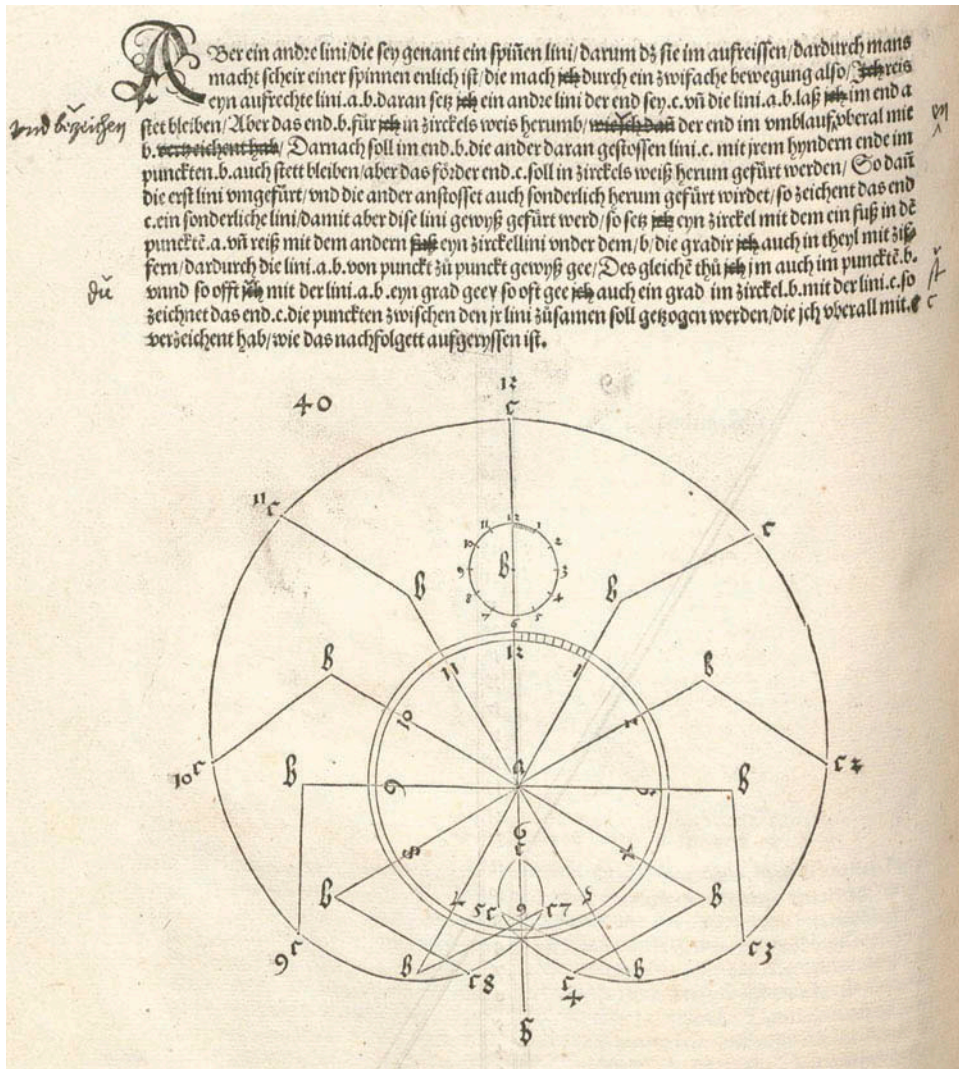 ABer ein andre lini/die sey genant ein spiñen lini/darum dz sie im aufreissen/dardurch mans
macht scheir einer spinnen enlich ist/die mach jch durch ein zwifache bewegung also/Jch reis
eyn aufrechte lini.a.b.daran setz jch ein andre lini der end sey.c.vñ die lini.a.b.laß jch im end a
vnd bezeichen
stet bleiben/Aber das end.b.für jch in zirckels weis herumb/wie jch dañ der end im vmblauf vberal mit
b.verzeichent hab/Darnach soll im end.b.die ander daran gestossen lini.c.mit jrem hyndern ende im
punckten.b.auch stett bleiben/aber das förder end.c.soll in zirckels weiß herum gefürt werden/So dañ
die erst lini vmgefürt/vnd die ander anstosset auch sonderlich herum gefürt wirdet/so zeichent das end
c.ein sonderliche lini/damit aber dise lini gewyß gefürt werd/so setz jch eyn zirckel mit dem ein fuß in dē
puncktē.a.vñ reiß mit dem andern fuß eyn zirckellini vnder dem/b/die gradir jch auch in theyl mit ziffern
fern/dardurch die lini.a.b.von punckt zů punckt gewyß gee/Des gleichē thů jch jm auch im puncktē.b.
dů
vnnd so offt jch mit der lini.a.b.eyn grad geev so oft gee jch auch ein grad im zirckel.b.mit der lini.c.so
st
zeichnet das end.c.die punckten zwischen den jr lini zůsamen soll getzogen werden/die jch vberall mit.c
c
verzeichent hab/wie das nachfolgett aufgeryssen ist.
40
12
c
11 c
c
12
11
1
10
2
9
b
3
8
4
7
5
6
b
b
12
11
1
b
b
10
2
10 c
c 2
a
b
9
3
b
6
c
8
4
b
b
7
5
5 c
6
c 7
9 c
c 3
b
c 8
c
4
b
b